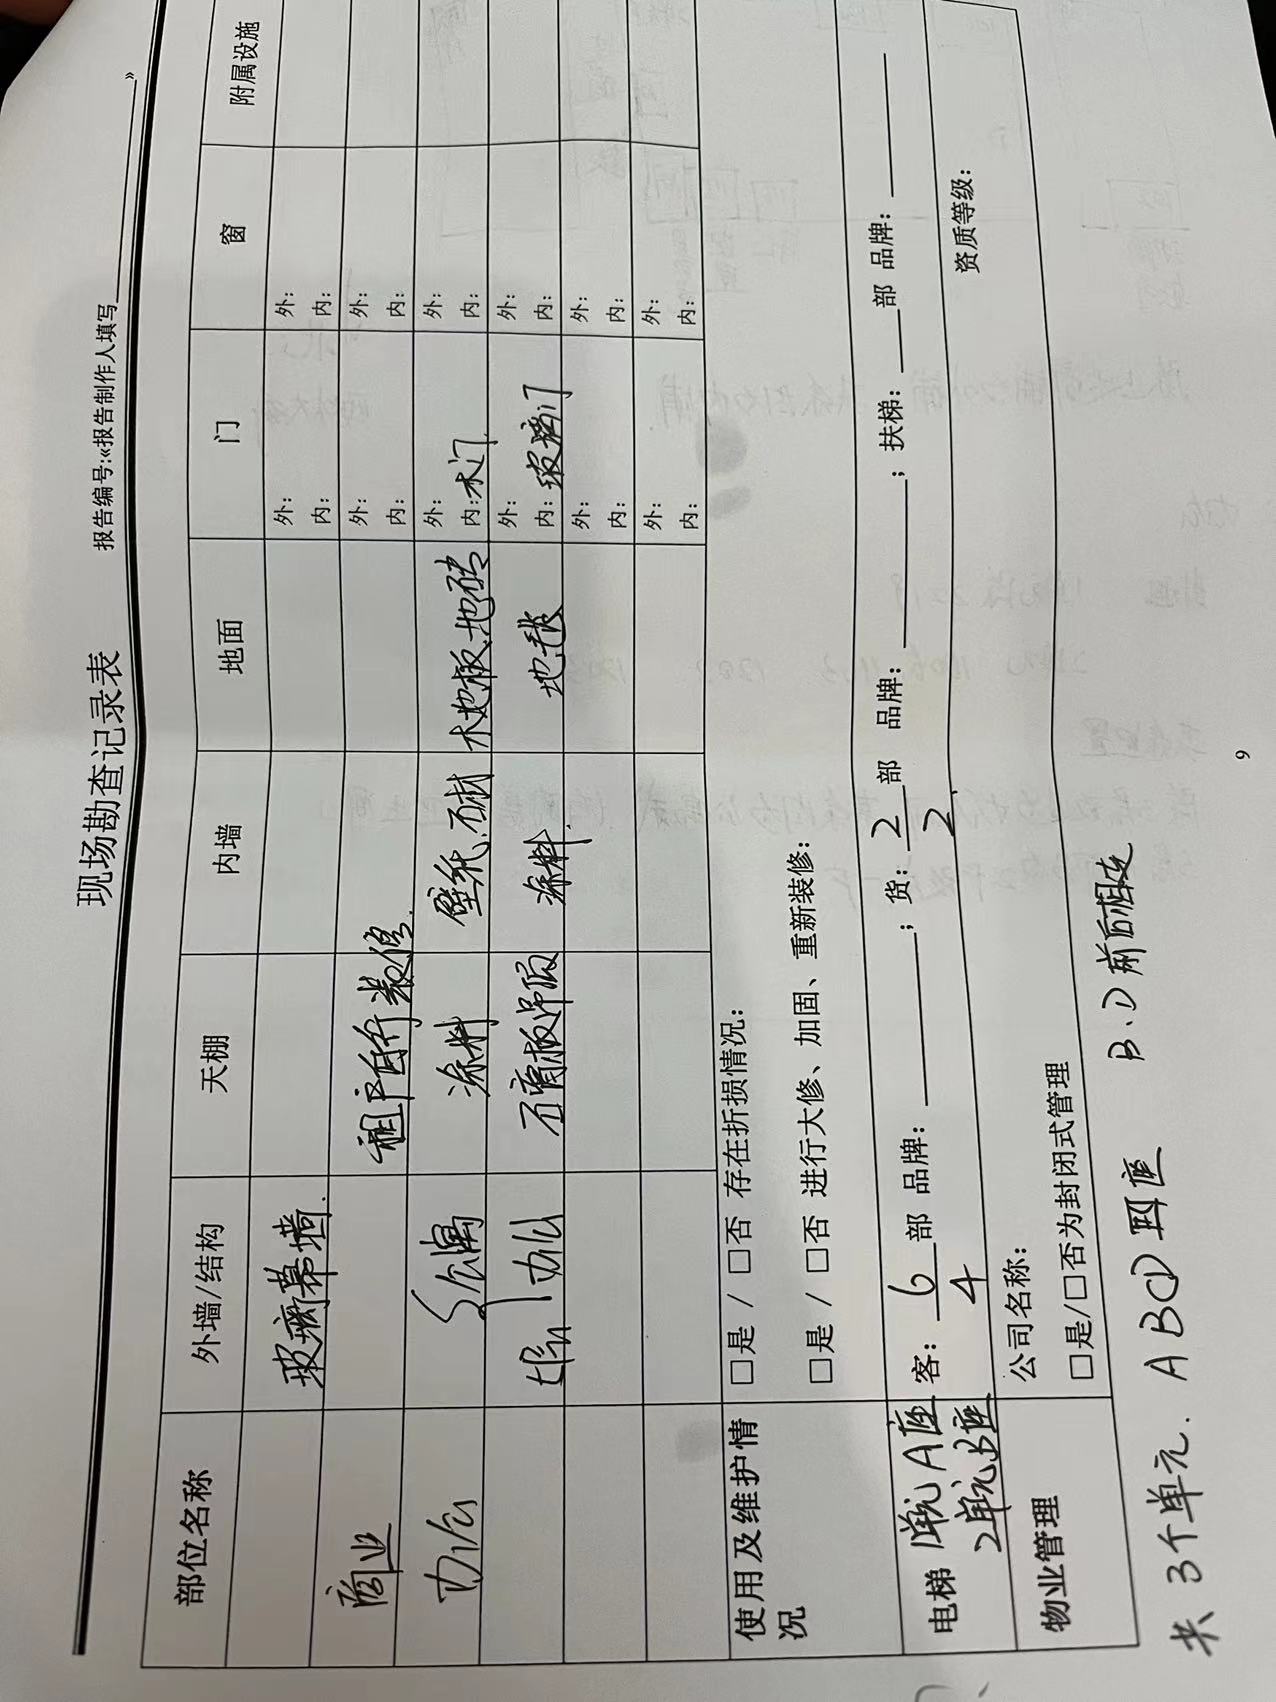 现场勘查记录表
报告编号:«报告制作人填写 »
部位名称 外墙/结构 天棚 内墙 地面 门 窗 附属设施
玻璃幕墙. 外: 内: 外: 内:
商业 租户自行装修. 外: 内: 外: 内:
办公 公寓 涂料 壁纸.石材 木地板.地砖 外: 内:木门. 外: 内:
办公 石膏板吊顶 涂料. 地毯 外: 内:玻璃门 外: 内:
外: 内: 外: 内:
外: 内: 外: 内:
使用及维护情况 □是 / □否 存在折损情况:
□是 / □否 进行大修、加固、重新装修:
电梯 1单元A座 客: 6 部 品牌: ; 货: 2 部 品牌: ; 扶梯: 部 品牌:
2单元B座 4 2
物业管理 公司名称: 资质等级:
□是/□否为封闭式管理
共3个单元. ABCD四座 B.D前后相连
9